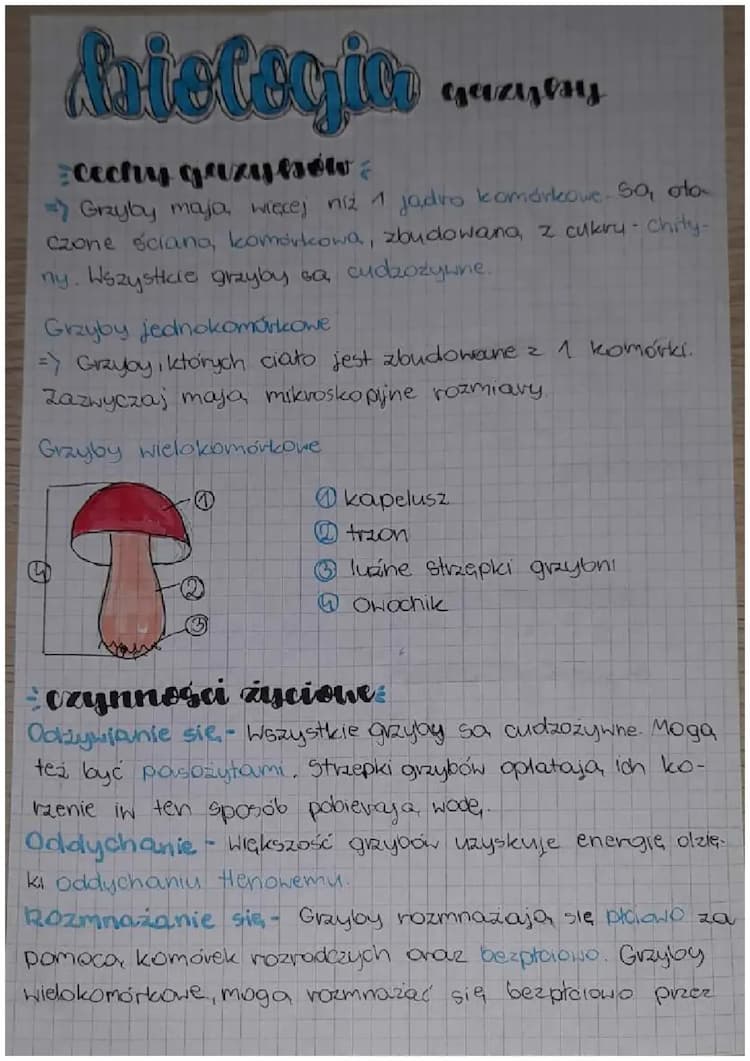 biologia grzyby
cechy grzybów
=> Grzyby mają więcej niż 1 jądro komórkowe. Są oto-
czone ścianą komórkową, zbudowaną z cukru - chity-
ny. Wszystkie grzyby są cudzożywne.
Grzyby jednokomórkowe
=> Grzyby, których ciało jest zbudowane z 1 komórki.
Zazwyczaj mają mikroskopijne rozmiary.
Grzyby wielokomórkowe
1 kapelusz
2 trzon
3 luźne strzępki grzybni
4 owocnik
1
2
3
4
czynności życiowe
Odżywianie się - Wszystkie grzyby są cudzożywne. Mogą
też być pasożytami. Strzępki grzybów oplatają ich ko-
rzenie iw ten sposób pobierają wodę.
Oddychanie - Większość grzybów uzyskuje energię dzię-
ki oddychaniu tlenowemu.
Rozmnażanie się - Grzyby rozmnażają się płciowo za
pomocą komórek rozrodczych oraz bezpłciowo. Grzyby
wielokomórkowe, mogą rozmnażać się bezpłciowo przez